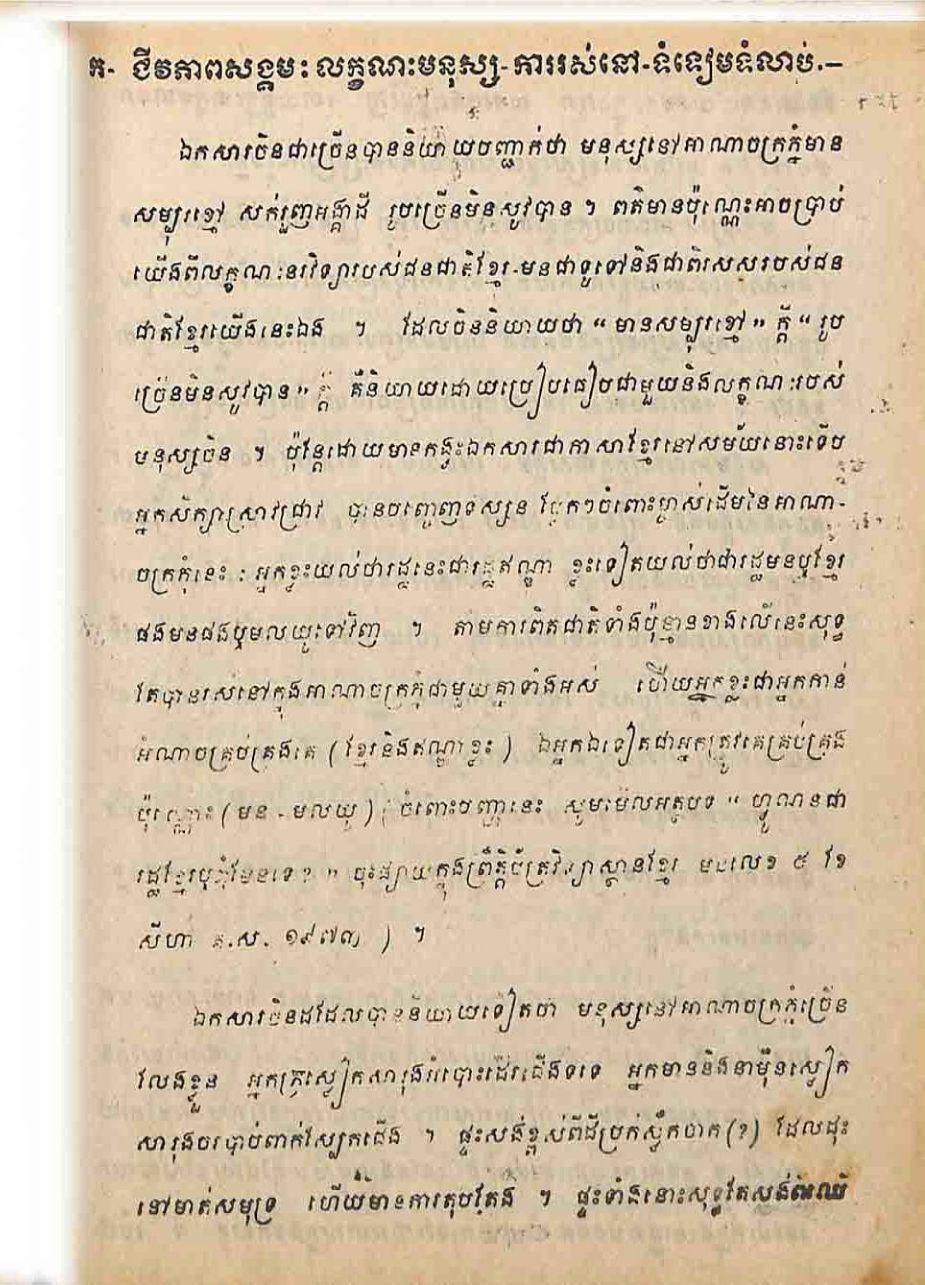 ក- ជីវភាពសង្គមៈ លក្ខណះមនុស្ស-ការរស់នៅ-ទំទៀមទំលាប់.–
ឯកសារចិនជាច្រើនបាននិយាយបញ្ជាក់ថា មនុស្សនៅអាណាចក្រភ្នំមាន
សម្បុរខ្មៅ សក់រួញអង្គាដី រូបច្រើនមិនសូវបាន ។ ពត៌មានប៉ុណ្ណេះអាចប្រាប់
យើងពីលក្ខណៈនរវិទ្យារបស់ជនជាតិខ្មែរ-មនជាទូទៅនិងជាពិសេសរបស់ជន
ជាតិខ្មែរយើងនេះឯង ។ ដែលចិននិយាយថា “ មានសម្បុរខ្មៅ ” ក្តី “ រូប
ច្រើនមិនសូវបាន ” ក្តី គឺនិយាយដោយប្រៀបធៀបជាមួយនិងលក្ខណៈរបស់
មនុស្សចិន ។ ប៉ុន្តែដោយមានកង្វះឯកសារជាភាសាខ្មែរនៅសម័យនោះទើប
អ្នកសិក្សាស្រាវជ្រាវ បានចេញទស្សនៈ ប្លែកៗចំពោះម្ចាស់ដើមនៃអាណា-
ចក្រភ្នំនេះ : អ្នកខ្លះយល់ថារដ្ឋនេះជារដ្ឋឥណ្ឌា ខ្លះទៀតយល់ថាជារដ្ឋមនឬខ្មែរ
ផងមនផងឬមលយូទៅវិញ ។ តាមការពិតជាតិទាំងប៉ុន្មានខាងលើនេះសុទ្ធ
តែបានរស់នៅក្នុងអាណាចក្រភ្នំជាមួយគ្នាទាំងអស់ ហើយអ្នកខ្លះជាអ្នកកាន់
អំណាចគ្រប់គ្រងគេ ( ខ្មែរនិងឥណ្ឌាខ្លះ ) ឯអ្នកឯទៀតជាអ្នកត្រូវគេគ្រប់គ្រង
ប៉ុណ្ណោះ ( មន - មលយូ ) ( ចំពោះបញ្ហានេះ សូមមើលអត្ថបទ “ ហ្វូណនជា
រដ្ឋខ្មែរឬភ្នំមែនទេ ? ” ចុះផ្សាយក្នុងព្រឹត្តិប័ត្រវិទ្យាស្ថានខ្មែរ លេខ ៥ ខែ
សីហា គ.ស. ១៩៧៣ ) ។
ឯកសារចិនដដែលបាននិយាយទៀតថា មនុស្សនៅអាណាចក្រភ្នំច្រើន
លែងខ្លួន អ្នកក្រស្លៀកសារុងអំបោះដើរជើងទទេ អ្នកមាននិងនាម៉ឺនស្លៀក
សារុងចរបាប់ពាក់ស្បែកជើង ។ ផ្ទះសង់ខ្ពស់ពីដីប្រក់ស្លឹកចាក (?) ដែលដុះ
នៅមាត់សមុទ្រ ហើយមានការតុបតែង ។ ផ្ទះទាំងនោះសុទ្ធតែសង់ពីឈើ